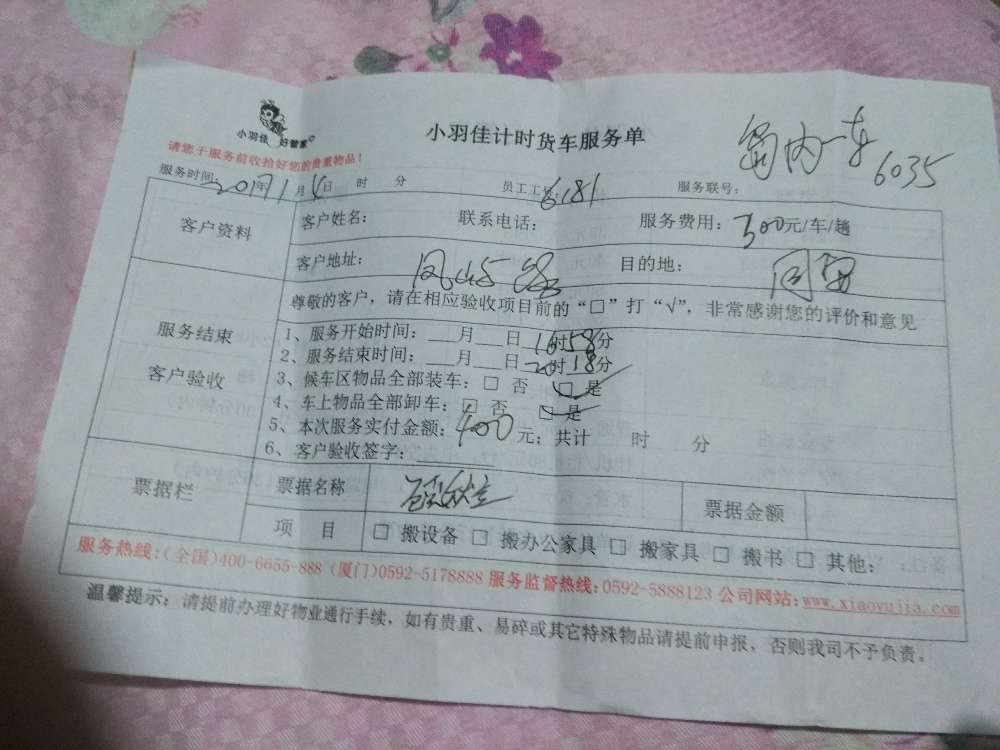 小羽佳 好管家
小羽佳计时货车服务单
6035
请您于服务前收拾好您的贵重物品!
服务时间: 年1月4日 时 分 员工工号: 6181 服务联号:
客户资料 客户姓名: 联系电话: 服务费用: 300元/车/趟
客户地址: 目的地:
服务结束 客户验收
尊敬的客户，请在相应验收项目前的“□”打“√”，非常感谢您的评价和意见
1、服务开始时间: ___月___日 16时58分
2、服务结束时间: ___月___日 20时18分
3、候车区物品全部装车: □ 否 □ 是
4、车上物品全部卸车: □ 否 □ 是
5、本次服务实付金额: 400元; 共计 时 分
6、客户验收签字:
票据栏 票据名称 票据金额
项 目 □ 搬设备 □ 搬办公家具 □ 搬家具 □ 搬书 □ 其他:
服务热线:(全国)400-6655-888 (厦门)0592-5178888 服务监督热线:0592-5888123 公司网站:www.xiaoyujia.com
温馨提示: 请提前办理好物业通行手续，如有贵重、易碎或其它特殊物品请提前申报，否则我司不予负责。